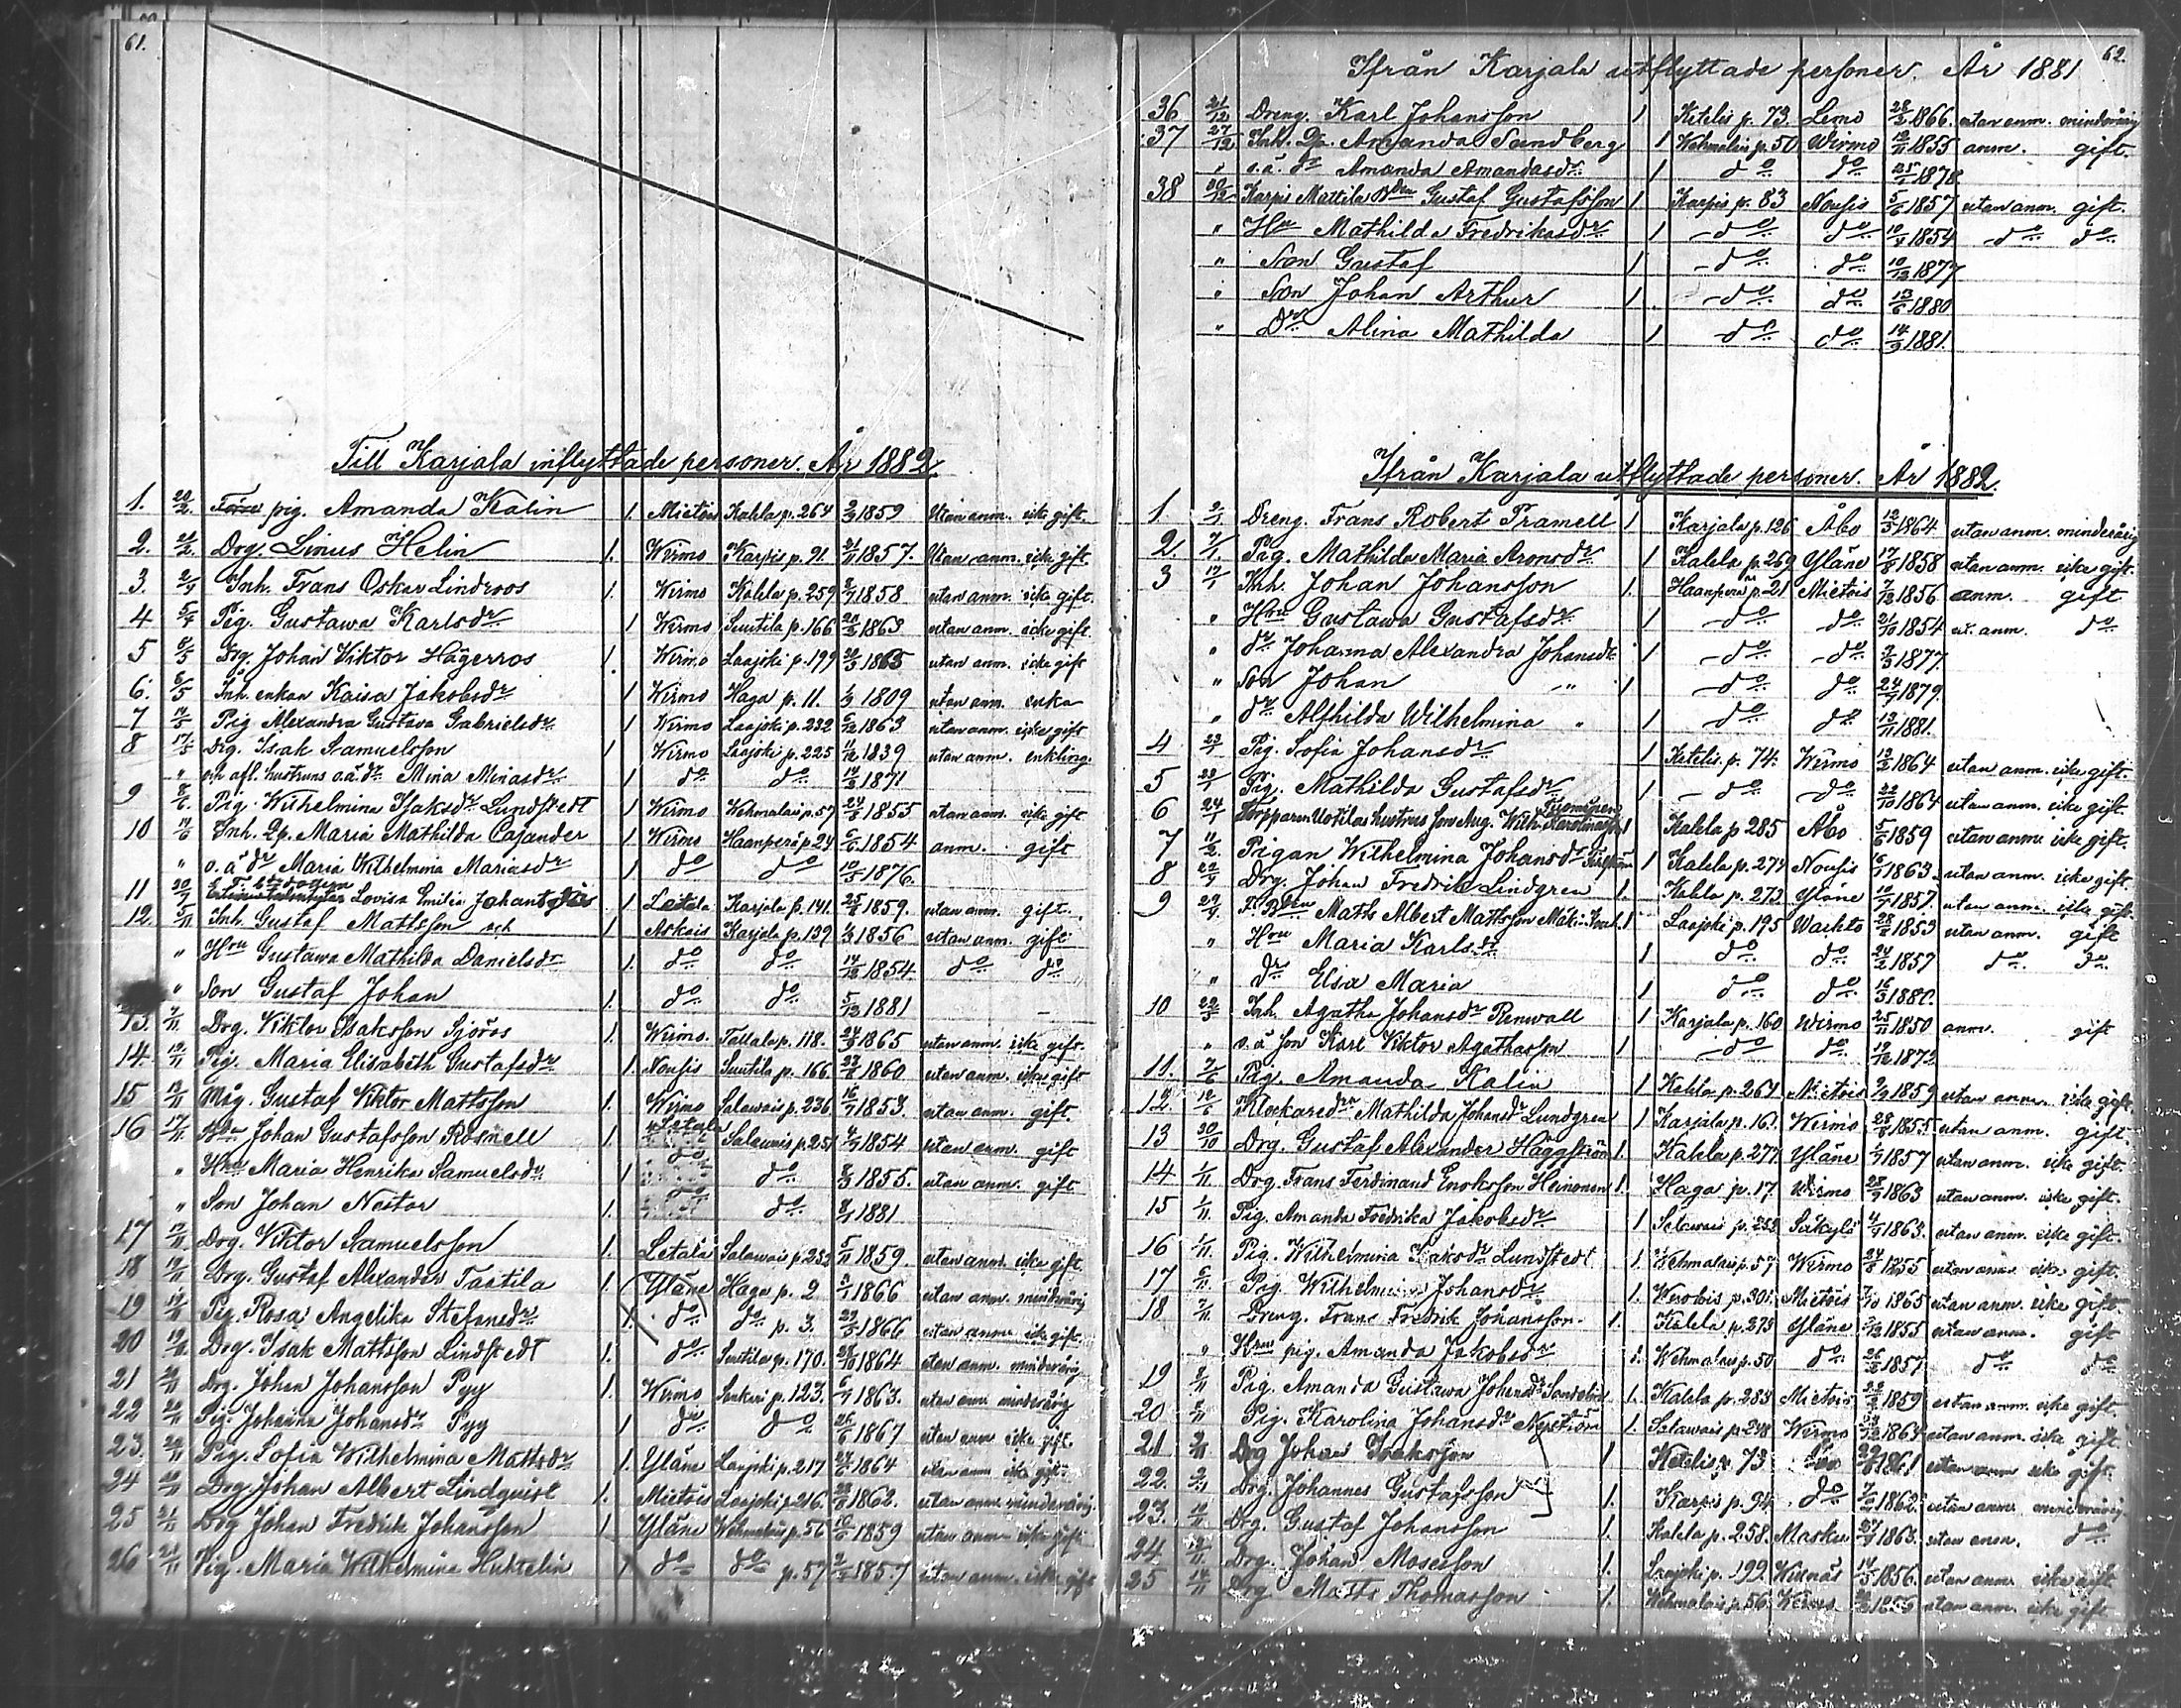 61.
Till Karjala inflyttade personer. År 1882.
1. 20/2. pig. Amanda Kalin 1. Mietois Kahla p. 264 2/3 1859 Utan anm. icke gift.
2. 21/2. Drg. Linus Helin 1. Wirmo Karpis p. 91. 21/11 1857. Utan anm. icke gift
3. 2/4 Inh. Frans Oskar Lindroos 1 Wirmo Kahla p. 259 2/7 1858 utan anm. icke gift.
4 5/4 Pig. Gustawa Karlsdr 1 Wirmo Suutila p. 166 20/3 1863 utan anm. icke gift.
5 8/5 Drg. Johan Viktor Hägerros 1. Wirmo Laajoki p. 199 1865 utan anm. icke gift
6. 6/5 Inh. enkan Kaisa Jakobsdr 1 Wirmo Haga p. 11. 1809 utan anm. enka
7 14/5 Pig Alexandra Gustava Gabrielsdr 1 Wirmo Laajoki p. 232 6/12 1863 utan anm. icke gift
8 17/5 Drg. Isak Samuelsson 1 Wirmo Laajoki p. 225 11/12 1839 utan anm. enkling.
" och afl. hustruns o.ä. dr Mina Minasdr 1 do do 14/3 1871
9 8/6. Pig. Wilhelmina Isaksdr Lundstedt 1 Wirmo Wehmalais p. 57 24/8 1855 utan anm. icke gift
10 Inh. Qp. Maria Mathilda Cajander 1 Wirmo Haanperä p. 24 6/6. 1854 anm. gift
" o. ä dr Maria Wilhelmina Mariasdr 1 do do 10/5 1876.
11 Lovisa Emilia Johantytär 1 Letala Karjala p. 141. 25/8 1859. utan anm. gift.
12. 3/11 Inh. Gustaf Mattsson och 1 Askais Karjala p. 139 1/3 1856 utan anm. gift
" Hru Gustawa Mathilda Danielsdr 1. do do 14/12 1854. do do
" Son Gustaf Johan 1. do do 5/12 1881
13. 7/11 Drg. Viktor Isaksson Sjöros 1. Wirmo. Tallala p. 118. 24/3 1865 utan anm. icke gift.
14. 12/11 Pig. Maria Elisabeth Gustafsdr 1. Nousis Suutila p. 166. 23/8 1860 utan anm. icke gift
15 12/11 Måg. Gustaf Viktor Mattsson 1. Wirmo Salawais p. 236 16/7 1853. utan anm. gift.
16 17/11. Bdn Johan Gustafsson Rosnell 1. Letala Salawais p. 251 4/9 1854 utan anm. gift
" Hru Maria Henrika Samuelsdr 1 do do 8/3 1855. utan anm. gift
" Son Johan Nestor 1. do do 8/1 1881
17 12/11 Drg. Viktor Samuelsson 1. Letala Salawais p. 252 5/11 1859. utan anm. icke gift.
18 19/11 Drg. Gustaf Alexander Tastila 1. Yläne Haga p. 2 1866 utan anm. minderårig
19 Pig. Rosa Angelika Stefansdr 1. do do p. 3. 29/3 1866 utan anm. icke gift.
20 19/11. Drg. Isak Mattsson Lindstedt 1. do Suutila p. 170. 28/10 1864 utan anm. minderårig
21 20/11 Drg. Johan Johansson Pyy 1. Wirmo Sunkari p. 123. 6/7 1863. utan anm. minderårig
22 20/11 Pig. Johanna Johansdr Pyy 1 do do 26/6 1867 utan anm icke gift.
23. 20/11 Pig. Sofia Wilhelmina Mattsdr 1. Yläne Laajoki p. 217 1864 utan anm icke gift.
24 20/11 Drg. Johan Albert Lindquist 1. Mietois Laajoki p. 216. 28/8 1862. utan anm. minderårig.
25 21/11 Drg Johan Fredrik Johansson 1. Yläne Wehmalais p. 56 10/6 1859 utan anm icke gift
26 21/11 Pig. Maria Wilhelmina Huhtelin 1 do do p. 57 1857 utan anm. icke gift
62.
Ifrån Karjala utflyttade personer. År 1881
36 21/12 Dreng. Karl Johansson 1 Ketelis p. 73. Lemo 28/2 1866. utan anm. minderårig
37 27/12 Inh. Qp. Amanda Sandberg 1 Wehmalais p. 50 Wirmo 12/11 1855 anm. gift.
" o. ä. dr Amanda Amandasdr 1 do do 25/1 1878
38 30/12 Karpis Mattila Bdn Gustaf Gustafsson 1. Karpis p. 83 Nousis 5/6 1857 utan anm. gift.
" Hru Mathilda Fredriksdr 1 do do 10/4 1854 do do
" Son Gustaf 1 do do 10/12 1877
" Son Johan Arthur 1 do do 13/6 1880
" Dr Alina Mathilda 1 do do 14/9 1881.
Ifrån Karjala utflyttade personer. År 1882.
1 2/1 Dreng. Frans Robert Pramell 1 Karjala p. 126 Åbo 12/3 1864. utan anm. minderårig
2. 7/1. Pig. Mathilda Maria Aronsdr 1 Kahla p. 269 Yläne 17/8 1858 utan anm. icke gift.
3 17/1 Inh. Johan Johansson 1. Haanperä p. 21 Mietois 7/12 1856 anm. gift
" Hru Gustawa Gustafsdr 1 do do 21/10 1854 ut. anm. do
" dr Johanna Alexandra Johansdr 1 do do 2/3 1877.
" Son Johan " 1 do do 24/7 1879.
" dr Alfhilda Wilhelmina " 1 do do 13/11 1881.
4 23/1 Pig. Sofia Johansdr 1 Ketelis p. 74. Wirmo 12/2 1864 utan anm. icke gift.
5 23/1 Pig. Mathilda Gustafsdr 1 do do 22/10 1864 utan anm. icke gift
6 24/1 Torpparen Uotilas hustrus son Aug. Wilh. Tuominen 1 Kahla p 285 Åbo 5/6 1859 utan anm. icke gift
7 11/2. Pigan Wilhelmina Johansdr 1 Kahla p. 274 Nousis 16/1 1863. utan anm. icke gift
8 22/4 Drg. Johan Fredrik Lindgren 1. Kahla p. 273 Yläne 10/1 1857. utan anm. icke gift.
9 29/4. F. Bden Matts Albert Mattsson Mäki- 1 Laajoki p. 195 Wachto 28/8 1853 utan anm. gift
" Hru Maria Karlsdr 1 do do 24/2 1857 do do
" Dr Elsa Maria 1 do do 16/3 1880.
10 22/5 Inh. Agatha Johansdr Renwall 1 Karjala p. 160 Wirmo 25/11 1850 anm. gift
" o. ä Son Karl Viktor Agathasson 1 do do 19/12 1873
11. 7/6 Pig. Amanda Kalin 1 Kahla p. 264 Mietois 2/3 1859 utan anm. icke gift.
12 12/6 Klockaredrn Mathilda Johansdr Lundgren 1 Karjala p. 161. Wirmo. 28/8 1855. utan anm. gift.
13 20/10 Drg. Gustaf Alexander Häggström 1. Kahla p. 277 Yläne 1/7 1857 utan anm. icke gift.
14 1/11 Drg. Frans Ferdinand Enoksson Heinonen 1. Haga p. 17. Wirmo 28/9 1863 utan anm. icke gift.
15 1/11. Pig. Amanda Fredrika Jakobsdr 1 Salawais p. 252 Säkylä 4/9 1863. utan anm. icke gift.
16 1/11. Pig. Wilhelmina Isaksdr Lundstedt 1. Wehmalais p. 57 Wirmo 24/8 1855 utan anm icke gift.
17 6/11 Pig. Wilhelmina Johansdr 1. Werois p. 301. Mietois 7/10 1865 utan anm. icke gift.
18 7/11 Dreng. Frans Fredrik Johansson. 1. Kahla p. 275 Yläne 1855 utan anm. gift
" Hru pig. Amanda Jakobsdr 1. Wehmalais p. 50 do 26/2 1857 do do
19 8/11 Pig. Amanda Gustawa Johansdr Sandelin 1. Kahla p. 283 Mietois 22/2 1859 utan anm. icke gift.
20 8/11 Pig. Karolina Johansdr Nyström 1. Salawais p. 248 Wirmo 1864 utan anm. icke gift
21 9/11 Drg Johan Isaksson 1 Ketelis p. 73 1861 utan anm icke gift
22. Drg. Johannes Gustafsson 1. Karpis p. 94. do 1862. utan anm. minderårig
23. 10/11 Drg. Gustaf Johansson 1. Kahla p. 258. Masku 27/7 1863. utan anm. do
24 12/11. Drg. Johan Mosesson 1. Laajoki p. 199. Kiknäs 14/5 1856. utan anm icke gift
25 14/11 Drg Matts Thomasson 1. Wehmalais p. 56. Wirmo utan anm. icke gift